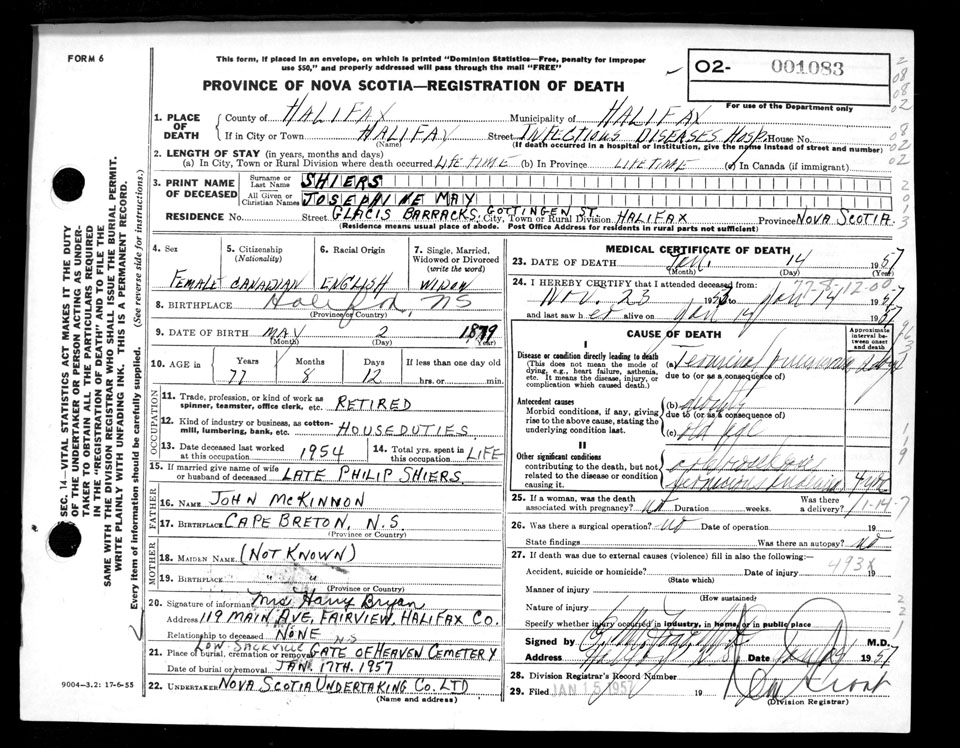 FORM 6
This form, if placed in an envelope, on which is printed "Dominion Statistics—Free, penalty for improper
use $50," and properly addressed will pass through the mail "FREE"
PROVINCE OF NOVA SCOTIA—REGISTRATION OF DEATH
O2- 001083
For use of the Department only
1. PLACE OF DEATH County of HALIFAX Municipality of HALIFAX
If in City or Town HALIFAX Street INFECTIOUS DISEASES HOSP. House No.
(Name) (If death occurred in a hospital or institution, give the name instead of street and number)
2. LENGTH OF STAY (in years, months and days)
(a) In City, Town or Rural Division where death occurred LIFE TIME (b) In Province LIFE TIME (c) In Canada (if immigrant)
3. PRINT NAME OF DECEASED Surname or Last Name SHIERS
All Given or Christian Names JOSEPHINE MAY
RESIDENCE No. Street GLACIS BARRACKS, GOTTINGEN ST. City, Town or Rural Division HALIFAX Province NOVA SCOTIA.
(Residence means usual place of abode. Post Office Address for residents in rural parts not sufficient)
SEC. 14—VITAL STATISTICS ACT MAKES IT THE DUTY
OF THE UNDERTAKER OR PERSON ACTING AS UNDER-
TAKER TO OBTAIN ALL THE PARTICULARS REQUIRED
IN THE "REGISTRATION OF DEATH" AND TO FILE THE
SAME WITH THE DIVISION REGISTRAR WHO SHALL ISSUE THE BURIAL PERMIT.
WRITE PLAINLY WITH UNFADING INK. THIS IS A PERMANENT RECORD.
Every item of information should be carefully supplied. (See reverse side for instructions.)
4. Sex 5. Citizenship (Nationality) 6. Racial Origin 7. Single, Married, Widowed or Divorced (write the word)
FEMALE CANADIAN ENGLISH WIDOW
8. BIRTHPLACE Halifax, NS
(Province or Country)
9. DATE OF BIRTH MAY 2 1879
(Month) (Day) (Year)
10. AGE in Years Months Days If less than one day old
77 8 12 hrs. or min.
OCCUPATION
11. Trade, profession, or kind of work as
spinner, teamster, office clerk, etc. RETIRED
12. Kind of industry or business, as cotton-
mill, lumbering, bank, etc. HOUSEDUTIES
13. Date deceased last worked at this occupation 1954 14. Total yrs. spent in this occupation LIFE
15. If married give name of wife
or husband of deceased LATE PHILIP SHIERS.
FATHER
16. NAME JOHN MCKINNON
17. BIRTHPLACE CAPE BRETON, N.S.
(Province or Country)
MOTHER
18. MAIDEN NAME (NOT KNOWN)
19. BIRTHPLACE " "
(Province or Country)
20. Signature of informant Mrs Harry Bryan
Address 119 MAIN AVE, FAIRVIEW, HALIFAX CO.
Relationship to deceased NONE N.S
LOW. SACKVILLE
21. Place of burial, cremation or removal GATE OF HEAVEN CEMETERY
Date of burial or removal JAN. 17TH. 1957
22. UNDERTAKER NOVA SCOTIA UNDERTAKING CO. LTD
(Name and address)
9004—3.2: 17-6-55
MEDICAL CERTIFICATE OF DEATH
23. DATE OF DEATH Jan. 14 1957
(Month) (Day) (Year)
24. I HEREBY CERTIFY that I attended deceased from:
Nov. 23 19 to Jan 14 1957
and last saw her alive on Jan 14 1957
CAUSE OF DEATH
Approximate interval between onset and death
I
Disease or condition directly leading to death
(This does not mean the mode of
dying, e.g., heart failure, asthenia,
etc. It means the disease, injury, or
complication which caused death.)
(a) Terminal pneumonia
due to (or as a consequence of)
Antecedent causes
Morbid conditions, if any, giving
rise to the above cause, stating the
underlying condition last.
(b)
due to (or as a consequence of)
(c) old age
II
Other significant conditions
contributing to the death, but not
related to the disease or condition
causing it.
pernicious 4 yrs
25. If a woman, was the death associated with pregnancy? no Duration weeks. Was there a delivery?
1-14-7
26. Was there a surgical operation? no Date of operation 19
State findings Was there an autopsy? no
27. If death was due to external causes (violence) fill in also the following:—
493X
Accident, suicide or homicide? Date of injury 19
(State which)
Manner of injury
(How sustained)
Nature of injury
Specify whether injury occurred in industry, in home, or in public place
Signed by M.D.
Address Date 1957
28. Division Registrar's Record Number
29. Filed JAN 15 1957 19
(Division Registrar)